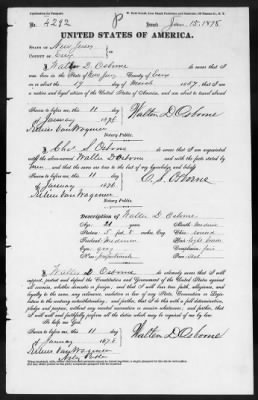 No. 4292 Issued Jan. 15. 1878
UNITED STATES OF AMERICA.
STATE OF New Jersey
COUNTY OF Essex
I, Walter D. Osborne do solemnly swear that I
was born in the State of New Jersey County of Essex
on or about the 19 day of March 1857, that I am
a native and loyal citizen of the United States of America, and am about to travel abroad
Sworn to before me this 11 day Walter D. Osborne
of January 1878
Notary Public.
I, Chas. S. Osborne do solemnly swear that I am acquainted
with the above-named Walter D. Osborne and with the facts stated by
him, and that the same are true to the best of my knowledge and belief.
Sworn to before me this 11 day C. S. Osborne
of January 1878
Notary Public.
Description of Walter D. Osborne
Age: 21 years Mouth: medium
Stature: 5 feet inches Eng. Chin: round
Forehead: medium Hair:
Eyes: gray Complexion: fair
Nose: Face: oval
I, Walter D. Osborne do solemnly swear that I will
support, protect and defend the Constitution and Government of the United States against
all enemies, whether domestic or foreign, and that I will bear true faith, allegiance, and
loyalty to the same, any ordinance, resolution or law of any State, Convention or Legis-
lature to the contrary notwithstanding; and further, that I do this with a full determination,
pledge and purpose, without any mental reservation or evasion whatsoever; and further, that
I will well and faithfully perform all the duties which may be required of me by law.
So help me God.
Sworn to before me this 11 day Walter D. Osborne
of January 1878